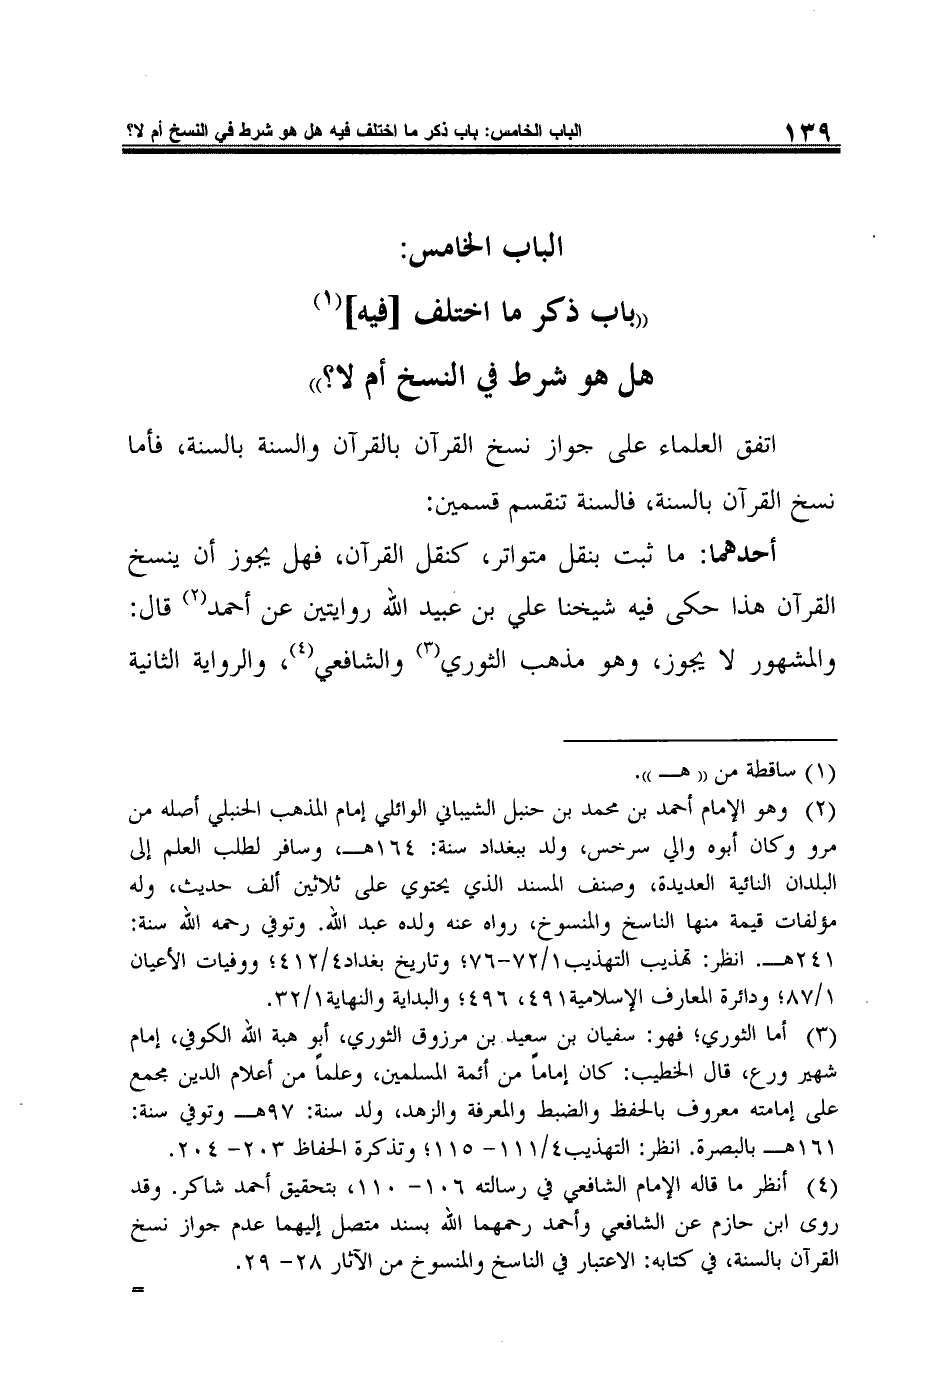 ١٣٩ الباب الخامس: باب ذكر ما اختلف فيه هل هو شرط في النسخ أم لا؟
الباب الخامس:
((باب ذكر ما اختلف [فيه](١)
هل هو شرط في النسخ أم لا؟))
اتفق العلماء على جواز نسخ القرآن بالقرآن والسنة بالسنة، فأما
نسخ القرآن بالسنة، فالسنة تنقسم قسمين:
أحدهما: ما ثبت بنقل متواتر، كنقل القرآن، فهل يجوز أن ينسخ
القرآن هذا حكى فيه شيخنا علي بن عبيد الله روايتين عن أحمد(٢) قال:
والمشهور لا يجوز، وهو مذهب الثوري(٣) والشافعي(٤)، والرواية الثانية
(١) ساقطة من (( هـــ )).
(٢) وهو الإمام أحمد بن محمد بن حنبل الشيباني الوائلي إمام المذهب الحنبلي أصله من
مرو وكان أبوه والي سرخس، ولد ببغداد سنة: ١٦٤هـــ، وسافر لطلب العلم إلى
البلدان النائية العديدة، وصنف المسند الذي يحتوي على ثلاثين ألف حديث، وله
مؤلفات قيمة منها الناسخ والمنسوخ، رواه عنه ولده عبد الله. وتوفي رحمه الله سنة:
٢٤١هـــ. انظر: تهذيب التهذيب٧٢/١-٧٦؛ وتاريخ بغداد٤١٢/٤؛ ووفيات الأعيان
٨٧/١؛ ودائرة المعارف الإسلامية٤٩١، ٤٩٦؛ والبداية والنهاية٣٢/١.
(٣) أما الثوري؛ فهو: سفيان بن سعيد بن مرزوق الثوري، أبو هبة الله الكوفي، إمام
شهير ورع، قال الخطيب: كان إماماً من أئمة المسلمين، وعلماً من أعلام الدين مجمع
على إمامته معروف بالحفظ والضبط والمعرفة والزهد، ولد سنة: ٩٧هـــ وتوفي سنة:
١٦١هـــ بالبصرة. انظر: التهذيب١١١/٤- ١١٥؛ وتذكرة الحفاظ ٢٠٣- ٢٠٤.
(٤) أنظر ما قاله الإمام الشافعي في رسالته ١٠٦- ١١٠، بتحقيق أحمد شاكر. وقد
روى ابن حازم عن الشافعي وأحمد رحمهما الله بسند متصل إليهما عدم جواز نسخ
القرآن بالسنة، في كتابه: الاعتبار في الناسخ والمنسوخ من الآثار ٢٨- ٢٩.
=